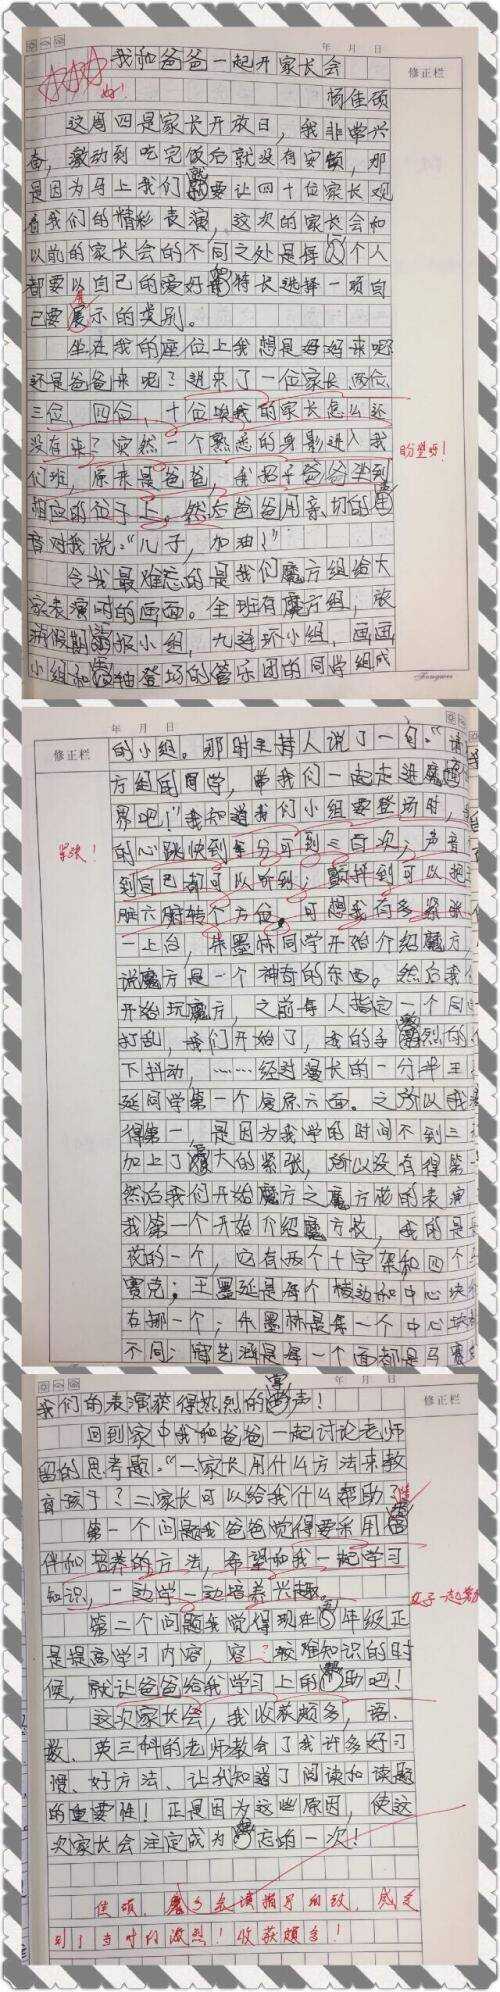 年 月 日
修正栏
我和爸爸一起开家长会
好!
杨佳硕
这周四是家长开放日，我非常兴
奋，激动到吃完饭后就没有安顿，那
是因为马上我们就要让四十位家长观
看我们的精彩表演，这次的家长会和
以前的家长会的不同之处是每个人
都要以自己的爱好和特长选择一项自
己要展示的类别。
坐在我的座位上我想是妈妈来呢
还是爸爸来呢？进来了一位家长、两位、
三位、四位、十位唉我的家长怎么还
没有来？突然一个熟悉的身影进入我
盼望呀！
们班，原来是爸爸，我招手爸爸坐到
相应的位子上。然后爸爸用亲切的声
音对我说：“儿子，加油！”
令我最难忘的是我们魔方组给大
家表演时的画面。全班有魔方组，放
假期小报小组，九连环小组，画画
小组和轴登场的管乐团的同学组成
年 月 日
修正栏
的小组。那时主持人说了一句：“请
方组的同学，带我们一起走进魔
界吧！”我知道我们小组要登场时，
的心跳快到每分可到三百次；声音
紧张！
到自己都可以听到；颤抖到可以把
脏六腑转个方位，可想我有多紧张
一上台，朱墨林同学开始介绍魔方，
说魔方是一个神奇的东西。然后我们
开始玩魔方，之前每人指定一个同
打乱，我们开始了，我的手烈的
下抖动，……经过漫长的一分半王
延同学第一个复原六面。之所以我
得第一，是因为我学的时间不到三
加上了大的紧张，所以没有得第
然后我们开始魔方之魔方花的表演
我第一个开始介绍魔方花，我的是
花的一个，它有两个十字架和四个
赛克；王墨延是每个棱边和中心块
在那一个；朱墨林是每一个中心块
不同；艺涵是每一个面都是马赛
年 月 日
修正栏
我们的表演获得热烈的掌声！
回到家中我和爸爸一起讨论老师
留的思考题。“一、家长用什么方法来教
育孩子？二、家长可以给我什么帮助？
第一个问题我爸爸觉得要采用陪
伴和培养的方法，希望和我一起学习
知识，一边学一边培养兴趣。
父子一起努力
第二个问题我觉得现在五年级正
是提高学习内容，容？较难知识的时
候，就让爸爸给我学习上的帮助吧！
这次家长会，我收获颇多，语、
数、英三科的老师教会了我许多好习
惯、好方法、让我知道了阅读和读题
的重要性！正是因为这些原因，使这
次家长会注定成为难忘的一次！
佳硕，感受
到了当时的激烈！收获颇多！